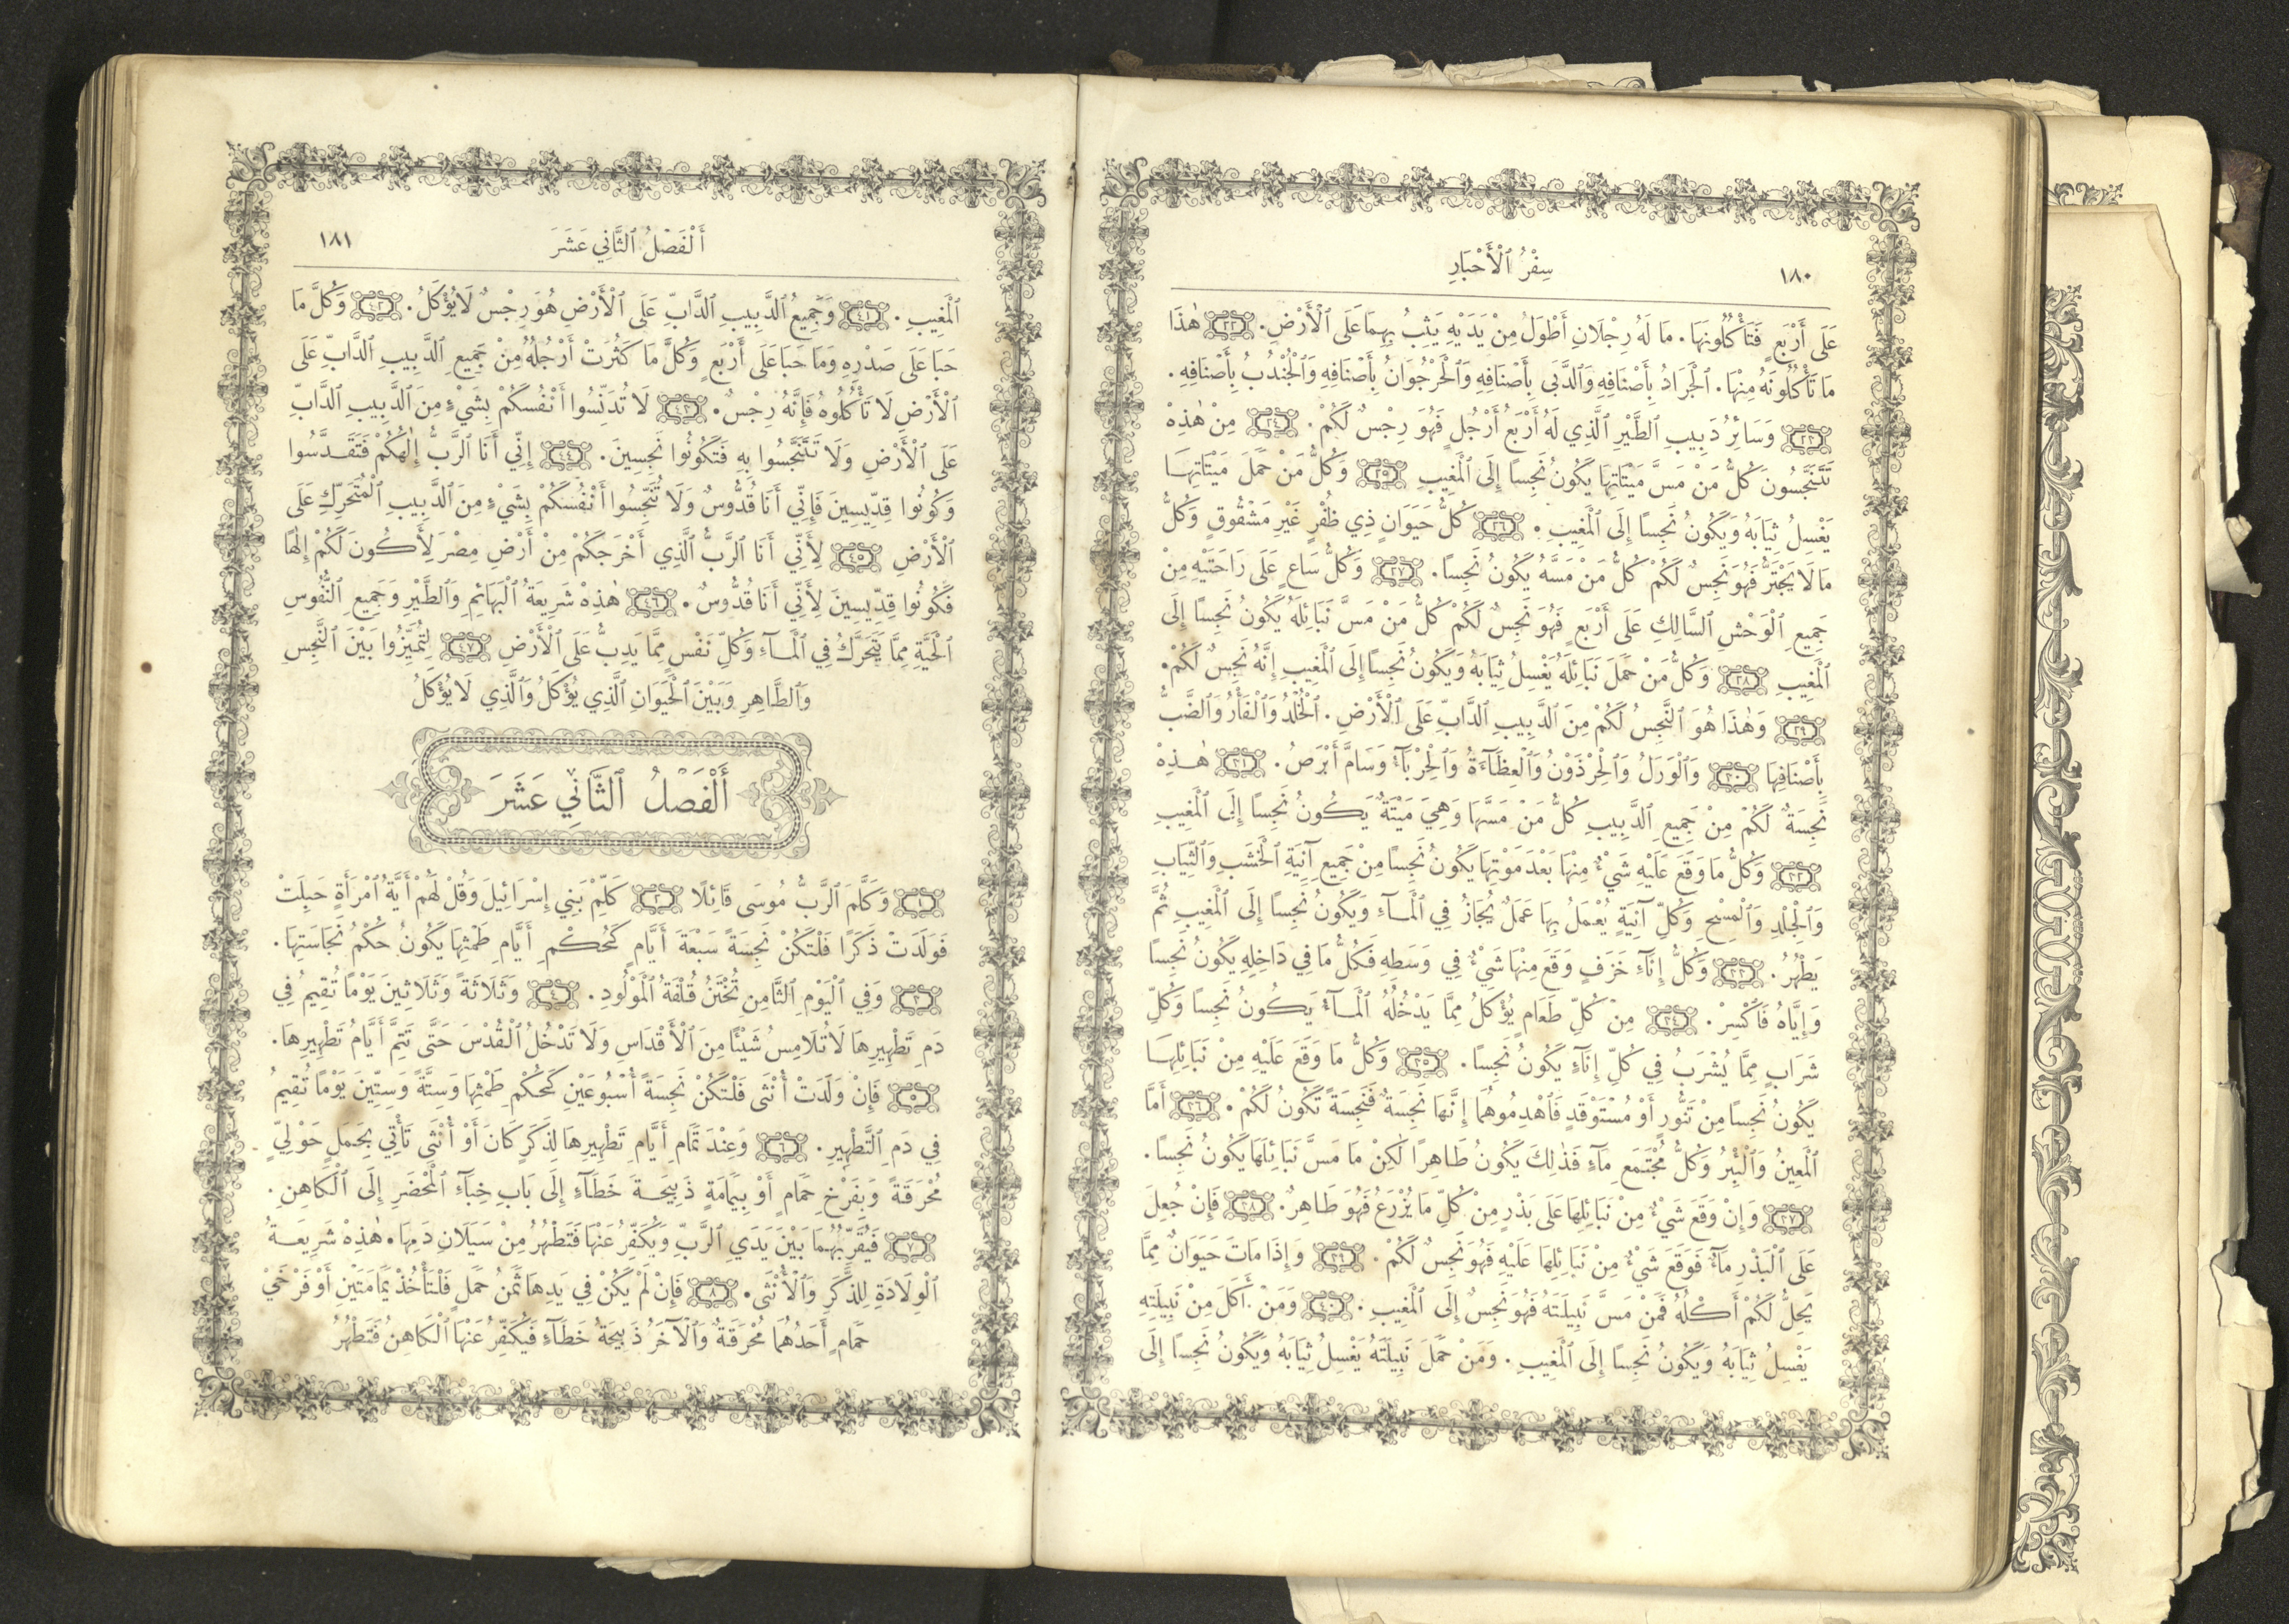 ١٨٠
سِفْرُ ٱلْأَحْبَارِ
عَلَى أَرْبَعٍ فَتَأْكُلُونَهَا. مَا لَهُ رِجْلَانِ أَطْوَلُ مِنْ يَدَيْهِ يَثِبُ بِهِمَا عَلَى ٱلْأَرْضِ. ٢٢ هٰذَا
مَا تَأْكُلُونَهُ مِنْهَا. ٱلْجَرَادُ بِأَصْنَافِهِ وَٱلدَّبَى بِأَصْنَافِهِ وَٱلْحَرْجُوَانُ بِأَصْنَافِهِ وَٱلْجُنْدُبُ بِأَصْنَافِهِ.
٢٣ وَسَائِرُ دَبِيبِ ٱلطَّيْرِ ٱلَّذِي لَهُ أَرْبَعُ أَرْجُلٍ فَهُوَ رِجْسٌ لَكُمْ. ٢٤ مِنْ هٰذِهِ
تَتَنَجَّسُونَ كُلُّ مَنْ مَسَّ مَيْتَاتِهَا يَكُونُ نَجِسًا إِلَى ٱلْمَغِيبِ ٢٥ وَكُلُّ مَنْ حَمَلَ مَيْتَاتِهَا
يَغْسِلُ ثِيَابَهُ وَيَكُونُ نَجِسًا إِلَى ٱلْمَغِيبِ. ٢٦ كُلُّ حَيَوَانٍ ذِي ظُفْرٍ غَيْرِ مَشْقُوقٍ وَكُلُّ
مَا لَا يَجْتَرُّ فَهُوَ نَجِسٌ لَكُمْ كُلُّ مَنْ مَسَّهُ يَكُونُ نَجِسًا. ٢٧ وَكُلُّ سَاعٍ عَلَى رَاحَتَيْهِ مِنْ
جَمِيعِ ٱلْوَحْشِ ٱلسَّالِكِ عَلَى أَرْبَعٍ فَهُوَ نَجِسٌ لَكُمْ كُلُّ مَنْ مَسَّ نَبَائِلَهُ يَكُونُ نَجِسًا إِلَى
ٱلْمَغِيبِ ٢٨ وَكُلُّ مَنْ حَمَلَ نَبَائِلَهُ يَغْسِلُ ثِيَابَهُ وَيَكُونُ نَجِسًا إِلَى ٱلْمَغِيبِ إِنَّهُ نَجِسٌ لَكُمْ.
٢٩ وَهٰذَا هُوَ ٱلنَّجِسُ لَكُمْ مِنَ ٱلدَّبِيبِ ٱلدَّابِّ عَلَى ٱلْأَرْضِ. ٱلْخُلْدُ وَٱلْفَأْرُ وَٱلضَّبُّ
بِأَصْنَافِهَا ٣٠ وَٱلْوَرَلُ وَٱلْحِرْذَوْنُ وَٱلْعِظَآءَةُ وَٱلْحِرْبَآءُ وَسَامُّ أَبْرَصُ. ٣١ هٰذِهْ
نَجِسَةٌ لَكُمْ مِنْ جَمِيعِ ٱلدَّبِيبِ كُلُّ مَنْ مَسَّهَا وَهِيَ مَيْتَةٌ يَكُونُ نَجِسًا إِلَى ٱلْمَغِيبِ
٣٢ وَكُلُّ مَا وَقَعَ عَلَيْهِ شَيْءٌ مِنْهَا بَعْدَ مَوْتِهَا يَكُونُ نَجِسًا مِنْ جَمِيعِ آنِيَةِ ٱلْخَشَبِ وَٱلثِّيَابِ
وَٱلْجِلْدِ وَٱلْمِسْحِ وَكُلِّ آنِيَةٍ يُعْمَلُ بِهَا عَمَلٌ يُجَازُ فِي ٱلْمَآءِ وَيَكُونُ نَجِسًا إِلَى ٱلْمَغِيبِ ثُمَّ
يَطْهُرُ. ٣٣ وَكُلُّ إِنَآءِ خَزَفٍ وَقَعَ مِنْهَا شَيْءٌ فِي وَسَطِهِ فَكُلُّ مَا فِي دَاخِلِهِ يَكُونُ نَجِسًا
وَإِيَّاهُ فَٱكْسِرْ. ٣٤ مِنْ كُلِّ طَعَامٍ يُؤْكَلُ مِمَّا يَدْخُلُهُ ٱلْمَآءُ يَكُونُ نَجِسًا وَكُلِّ
شَرَابٍ مِمَّا يُشْرَبُ فِي كُلِّ إِنَآءٍ يَكُونُ نَجِسًا. ٣٥ وَكُلُّ مَا وَقَعَ عَلَيْهِ مِنْ نَبَائِلِهَا
يَكُونُ نَجِسًا مِنْ تَنُّورٍ أَوْ مُسْتَوْقَدٍ فَٱهْدِمُوهُمَا إِنَّهَا نَجِسَةٌ فَنَجِسَةً تَكُونُ لَكُمْ. ٣٦ أَمَّا
ٱلْمَعِينُ وَٱلْبِئْرُ وَكُلُّ مُجْتَمَعِ مَآءٍ فَذٰلِكَ يَكُونُ طَاهِرًا لٰكِنْ مَا مَسَّ نَبَائِلَهَا يَكُونُ نَجِسًا.
٣٧ وَإِنْ وَقَعَ شَيْءٌ مِنْ نَبَائِلِهَا عَلَى بَذْرٍ مِنْ كُلِّ مَا يُزْرَعُ فَهُوَ طَاهِرٌ. ٣٨ فَإِنْ جُعِلَ
عَلَى ٱلْبَذْرِ مَآءٌ فَوَقَعَ شَيْءٌ مِنْ نَبَائِلِهَا عَلَيْهِ فَهُوَ نَجِسٌ لَكُمْ. ٣٩ وَإِذَا مَاتَ حَيَوَانٌ مِمَّا
يَحِلُّ لَكُمْ أَكْلُهُ فَمَنْ مَسَّ نَبِيلَتَهُ فَهُوَ نَجِسٌ إِلَى ٱلْمَغِيبِ. ٤٠ وَمَنْ أَكَلَ مِنْ نَبِيلَتِهِ
يَغْسِلُ ثِيَابَهُ وَيَكُونُ نَجِسًا إِلَى ٱلْمَغِيبِ. وَمَنْ حَمَلَ نَبِيلَتَهُ يَغْسِلُ ثِيَابَهُ وَيَكُونُ نَجِسًا إِلَى
أَلْفَصْلُ ٱلثَّانِي عَشَرَ
١٨١
ٱلْمَغِيبِ. ٤١ وَجَمِيعُ ٱلدَّبِيبِ ٱلدَّابِّ عَلَى ٱلْأَرْضِ هُوَ رِجْسٌ لَا يُؤْكَلُ. ٤٢ وَكُلَّ مَا
حَبَا عَلَى صَدْرِهِ وَمَا حَبَا عَلَى أَرْبَعٍ وَكُلَّ مَا كَثُرَتْ أَرْجُلُهُ مِنْ جَمِيعِ ٱلدَّبِيبِ ٱلدَّابِّ عَلَى
ٱلْأَرْضِ لَا تَأْكُلُوهُ فَإِنَّهُ رِجْسٌ. ٤٣ لَا تُدَنِّسُوا أَنْفُسَكُمْ بِشَيْءٍ مِنَ ٱلدَّبِيبِ ٱلدَّابِّ
عَلَى ٱلْأَرْضِ وَلَا تَتَنَجَّسُوا بِهِ فَتَكُونُوا نَجِسِينَ. ٤٤ إِنِّي أَنَا ٱلرَّبُّ إِلٰهُكُمْ فَتَقَدَّسُوا
وَكُونُوا قِدِّيسِينَ فَإِنِّي أَنَا قُدُّوسٌ وَلَا تُنَجِّسُوا أَنْفُسَكُمْ بِشَيْءٍ مِنَ ٱلدَّبِيبِ ٱلْمُتَحَرِّكِ عَلَى
ٱلْأَرْضِ ٤٥ لِأَنِّي أَنَا ٱلرَّبُّ ٱلَّذِي أَخْرَجَكُمْ مِنْ أَرْضِ مِصْرَ لِأَكُونَ لَكُمْ إِلٰهًا
فَكُونُوا قِدِّيسِينَ لِأَنِّي أَنَا قُدُّوسٌ. ٤٦ هٰذِهْ شَرِيعَةُ ٱلْبَهَائِمِ وَٱلطَّيْرِ وَجَمِيعِ ٱلنُّفُوسِ
ٱلْحَيَّةِ مِمَّا يَتَحَرَّكُ فِي ٱلْمَآءِ وَكُلِّ نَفْسٍ مِمَّا يَدِبُّ عَلَى ٱلْأَرْضِ ٤٧ لِتُمَيِّزُوا بَيْنَ ٱلنَّجِسِ
وَٱلطَّاهِرِ وَبَيْنَ ٱلْحَيَوَانِ ٱلَّذِي يُؤْكَلُ وَٱلَّذِي لَا يُؤْكَلُ
أَلْفَصْلُ ٱلثَّانِي عَشَرَ
١ وَكَلَّمَ ٱلرَّبُّ مُوسَى قَائِلًا ٢ كَلِّمْ بَنِي إِسْرَائِيلَ وَقُلْ لَهُمْ أَيَّةُ ٱمْرَأَةٍ حَبِلَتْ
فَوَلَدَتْ ذَكَرًا فَلْتَكُنْ نَجِسَةً سَبْعَةَ أَيَّامٍ كَحُكْمِ أَيَّامِ طَمْثِهَا يَكُونُ حُكْمُ نَجَاسَتِهَا.
٣ وَفِي ٱلْيَوْمِ ٱلثَّامِنِ تُخْتَنُ قُلْفَةُ ٱلْمَوْلُودِ. ٤ وَثَلَاثَةً وَثَلَاثِينَ يَوْمًا تُقِيمُ فِي
دَمِ تَطْهِيرِهَا لَا تُلَامِسُ شَيْئًا مِنَ ٱلْأَقْدَاسِ وَلَا تَدْخُلُ ٱلْقُدْسَ حَتَّى تَتِمَّ أَيَّامُ تَطْهِيرِهَا.
٥ فَإِنْ وَلَدَتْ أُنْثَى فَلْتَكُنْ نَجِسَةً أُسْبُوعَيْنِ كَحُكْمِ طَمْثِهَا وَسِتَّةً وَسِتِّينَ يَوْمًا تُقِيمُ
فِي دَمِ ٱلتَّطْهِيرِ. ٦ وَعِنْدَ تَمَامِ أَيَّامِ تَطْهِيرِهَا لِذَكَرٍ كَانَ أَوْ أُنْثَى تَأْتِي بِحَمَلٍ حَوْلِيٍّ
مُحْرَقَةً وَبِفَرْخِ حَمَامٍ أَوْ بِيَمَامَةٍ ذَبِيحَةَ خَطَآءٍ إِلَى بَابِ خِبَآءِ ٱلْمَحْضَرِ إِلَى ٱلْكَاهِنِ.
٧ فَيُقَرِّبُهُمَا بَيْنَ يَدَيِ ٱلرَّبِّ وَيُكَفِّرُ عَنْهَا فَتَطْهُرُ مِنْ سَيَلَانِ دَمِهَا. هٰذِهْ شَرِيعَةُ
ٱلْوِلَادَةِ لِلذَّكَرِ وَٱلْأُنْثَى. ٨ فَإِنْ لَمْ يَكُنْ فِي يَدِهَا ثَمَنُ حَمَلٍ فَلْتَأْخُذْ يَمَامَتَيْنِ أَوْ فَرْخَيْ
حَمَامٍ أَحَدُهُمَا مُحْرَقَةٌ وَٱلْآخَرُ ذَبِيحَةُ خَطَآءٍ فَيُكَفِّرُ عَنْهَا ٱلْكَاهِنُ فَتَطْهُرُ